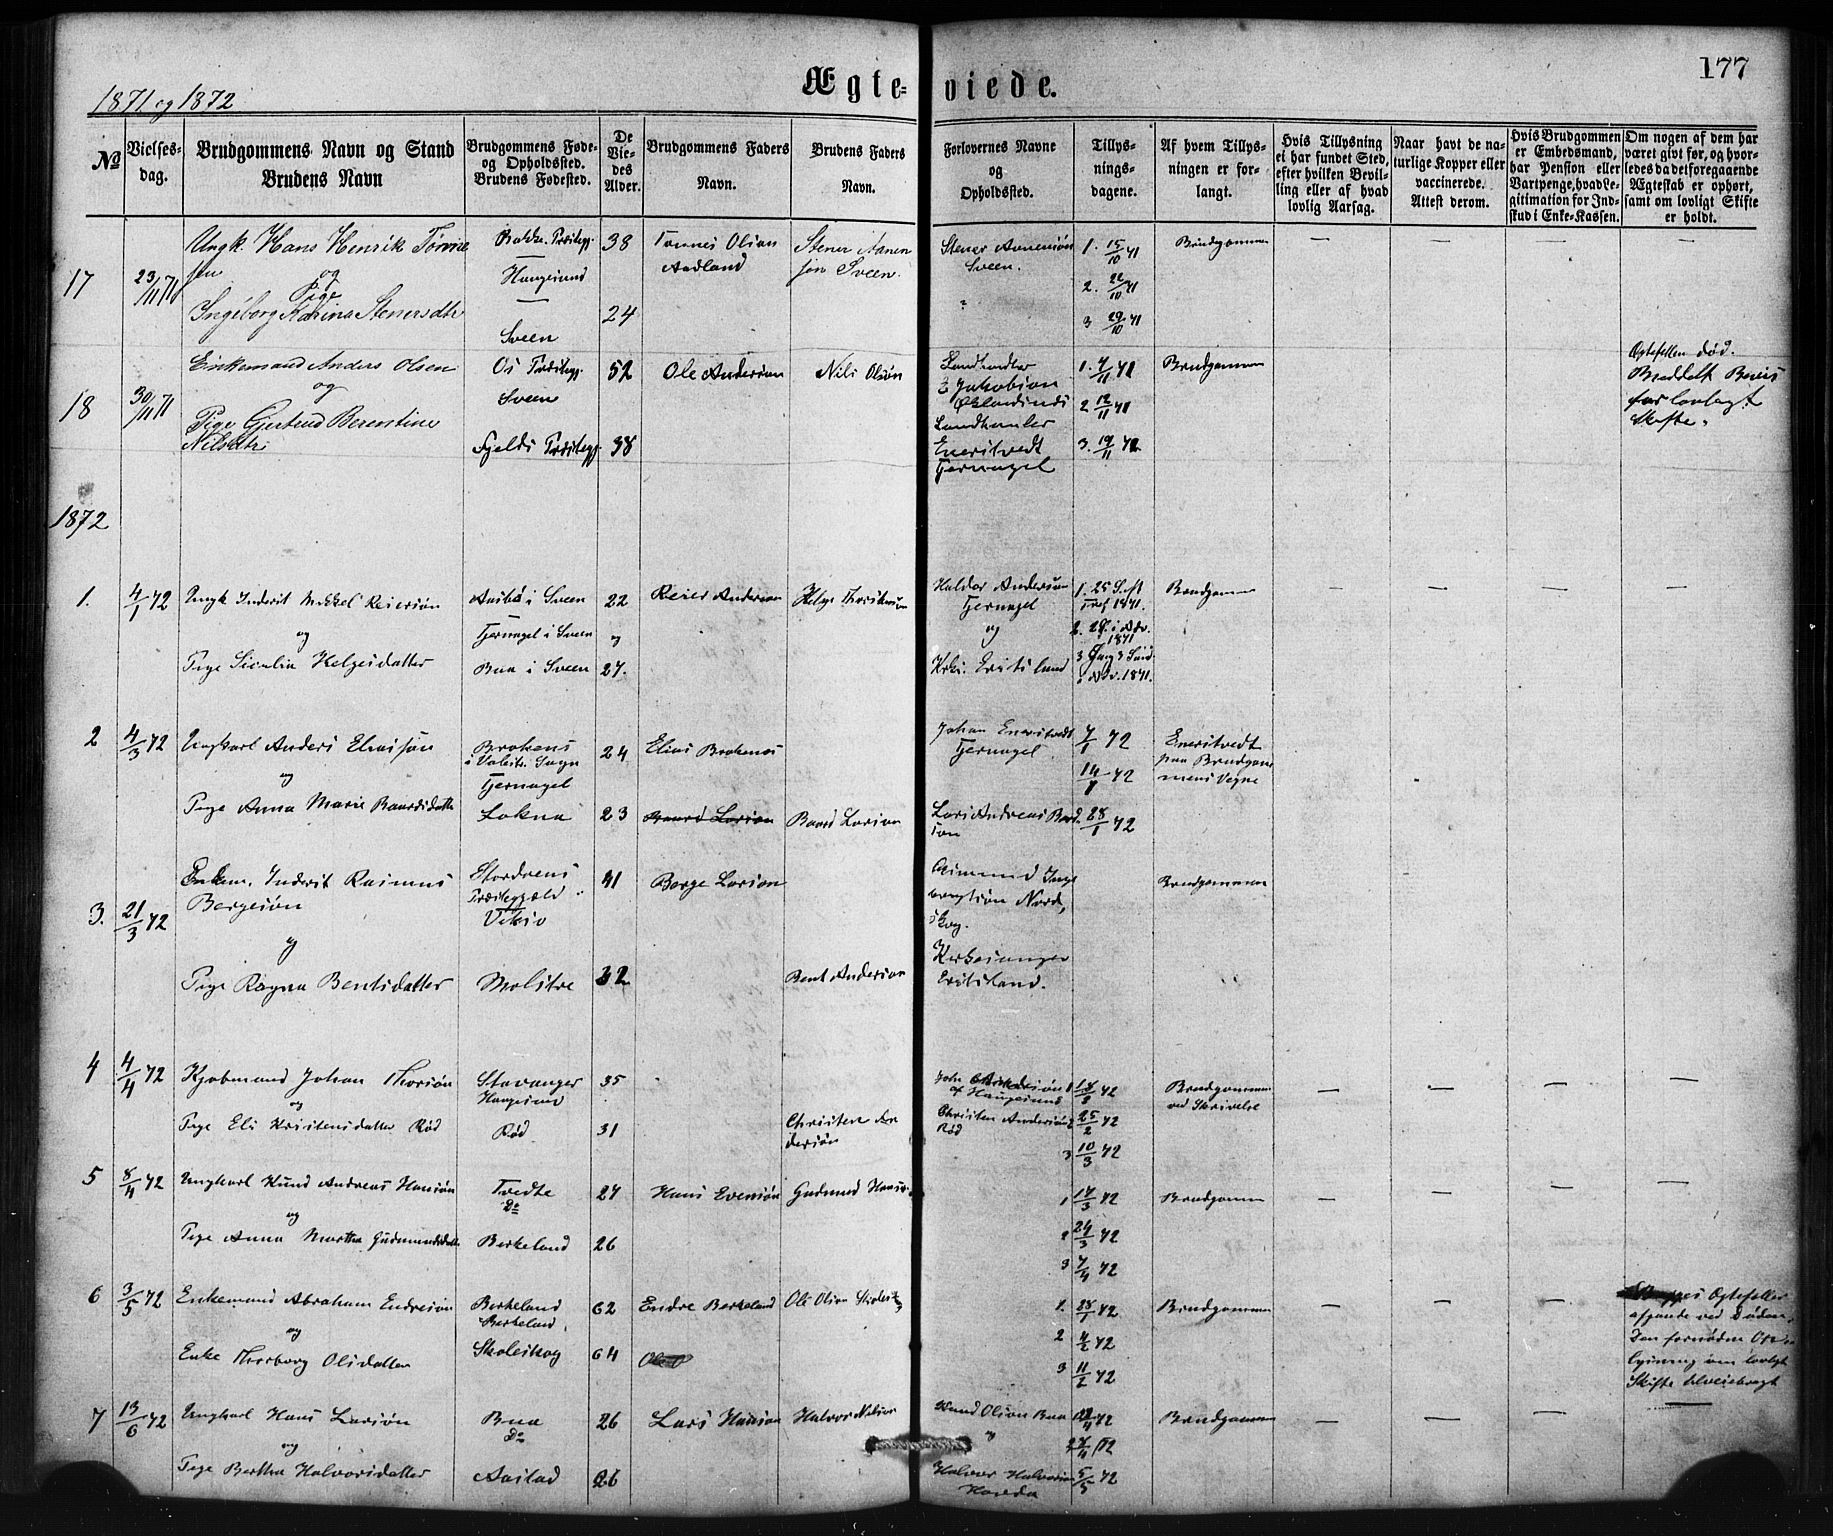 177
1871 og 1872
Ægte-viede.
No
Vielses-dag.
Brudgommens Navn og Stand
Brudens Navn
Brudgommens Føde-
og Opholdssted.
Brudens Fødested.
De
Vie-
des
Alder.
Brudgommens Faders
Navn.
Brudens Faders
Navn.
Forlovernes Navne
og
Opholdssted.
Tillys-
nings-
dagene.
Af hvem Tillys-
ningen er for-
langt.
Hvis Tillysning
ei har fundet Sted,
efter hvilken Bevil-
ling eller af hvad
lovlig Aarsag.
Naar havt de na-
turlige Kopper eller
vaccinerede.
Attest derom.
Hvis Brudgommen
er Embedsmand,
har Pension eller
Vartpenge, hvad Le-
gitimation for Ind-
skud i Enke-Kassen.
Om nogen af dem har
været givt før, og hvor-
ledes da det foregaaende
Ægteskab er ophørt,
samt om lovligt Skifte
er holdt.
17
23/11 71
Ungk. Hans Henrik Tønne
sen
og
Pige
Ingeborg Karina Stenersdtr
Haugesund
Sveen
38
24
Tønnes Olsen
Aadland
Stener Aanen
søn Sveen.
Stener Aanensøn
Sveen.
1. 15/10 71
2. 22/10 71
3 29/10 71
Brudgommen
— — — —
18
30/11 71
Enkemand Anders Olsen
og
Pige Gjertrud Berentine
Nilsdtr
Os Præstegj.
Sveen
Fjelds Præstegj.
52
38
Ole Andersøn
Nils Olsøn
Landhandler
Landhandler
Enerstvedt
Tjernagel
1. 4/11 71
2 12/11 71
3. 19/11 71
Brudgommen
Ægtefellen død.
Meddelt Beviis
for lovlagt
Skifte.
1872
1.
4/1 72
Ungk Inderst Mikkel Reiersøn
og
Pige Siselia Helgesdatter
Aasbø i Sveen
Tjernagel i Sveen
Bua i Sveen
22
og
27.
Reier Andersøn
Helge Thorkelsøn
Haldor Andersøn
Tjernagel
og
Krks. Eritsland
1. 25 S. eft
Tref 1871.
1871
Brudgommen
— — — —
2
4/3 72
Ungkarl Anders Eliassøn
og
Pige Anna Marie Baardsdatter
Brokenes
i Valestr. Sogn
Tjernagel
Lokna
24
23
Elias Brokenes
Baard Larsøn
Baard Larsøn
Johan Enerstvedt
Tjernagel
Lars Andreas Bard
søn
7/1 72
14/1 72
28/1 72
Enerstvedt
paa Brudgom
mens Vegne
— — — —
3.
21/3 72
Enkem. Inderst Rasmus
Børgesøn
og
Pige Ragna Bentsdatter
Stordøens
Præstegjæld
Molstre
41
32
Børge Larsøn
Bent Andersøn
Aamund Inge
brigtsøn Nord,
skog.
Kirkesanger
Eritsland.
Brudgommen
4
4/4 72
Kjøbmand Johan Thorsøn
og
Pige Eli Kristensdatter Rød
Stavanger
Haugesund
Rød
35
31
Christen An
dersøn
af Haugesund
Christen Andersøn
Rød
1 18/2 72
2 25/2 72
3 10/3 72
Brudgommen
ved Skrivelse
— — — —
5
8/4 72
Ungkarl Knud Andreas Hansøn
og
Pige Anna Martha Gudmundsdatter
Tvedte
Do
Berkeland
27
26
Hans Evensøn
Gudmund Hansøn
1 17/3 72
2 24/3 72
3 7/4 72
Brudgommen
— — — —
6
3/5 72
Enkemand Abraham Endresøn
og
Enke Thorborg Olsdatter
Berkeland
Berkeland.
Skoleskog
62
64
Endre Berkeland
Ole Olsøn Skoleskog
1. 28/1 72
2 4/2 72
3 11/2 72
Brudgommen
— — —
Ægtefeller
afgaaede ved Døden.
Den fornødne Op
lysning om lovligt
Skifte tilveiebragt
7
13/6 72
Ungkarl Hans Larsøn
og
Pige Bertha Halvorsdatter
Bua
Do
Aastad
26
26
Lars Hansøn
Halvor Nilsøn
Knud Olsøn Bua
og
Halvor Halvorsøn
5/5 72
Brudgommen
— — — —